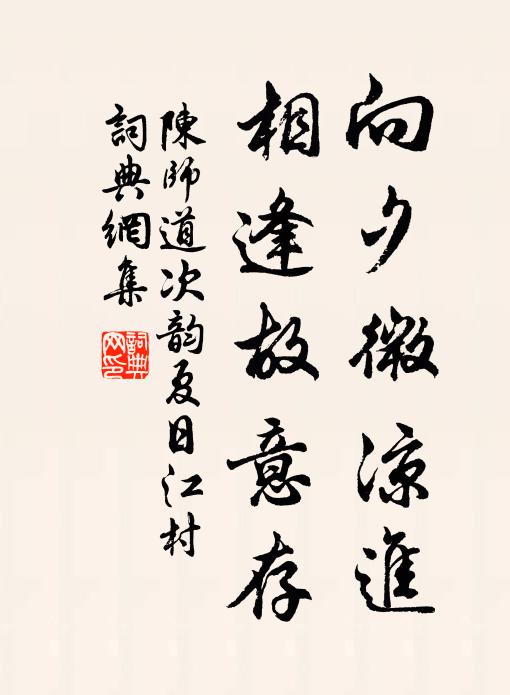 向夕微涼進
相逢故意存
陳師道次韵夏日江村
詞典網集
詞典网印